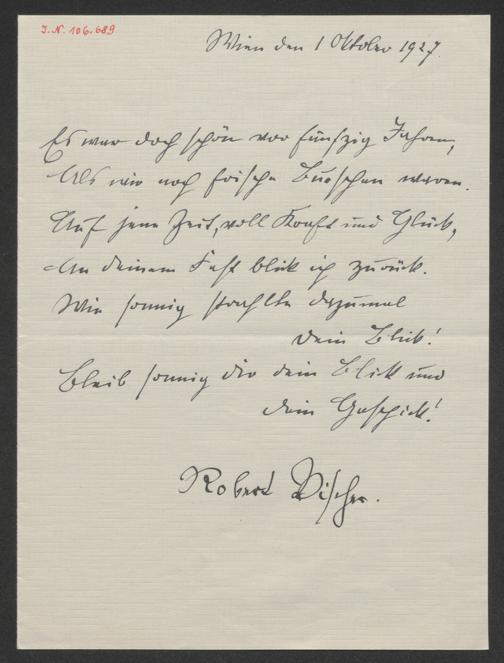 J.N. 106.689
Wien den 1 Oktober 1927.
Es war doch schön vor fünfzig Jahren,
Als wir noch frische Burschen waren.
Auf jene Zeit, voll Kraft und Glück,
An deinem Fest blick ich zurück.
Wie sonnig strahlte dazumal
dein Blick!
Bleib sonnig dir dein Blick und
dein Geschick!
Robert Fischer.